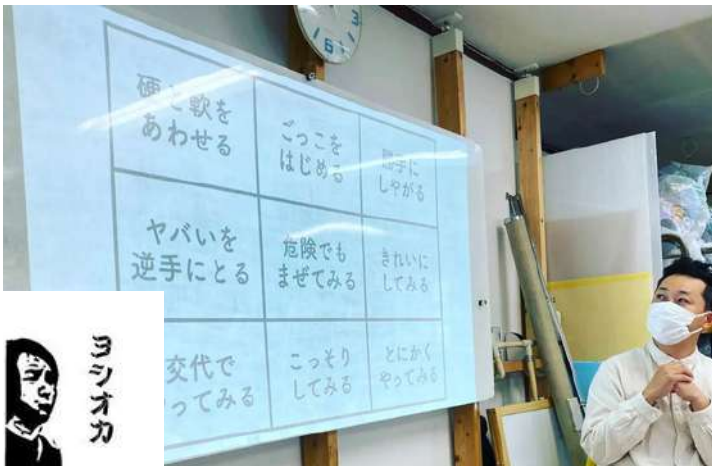 硬と軟を
あわせる
ごっこを
はじめる
勝手に
しやがる
ヤバいを
逆手にとる
危険でも
まぜてみる
きれいに
してみる
交代で
ってみる
こっそり
してみる
とにかく
やってみる
ヨシオカ